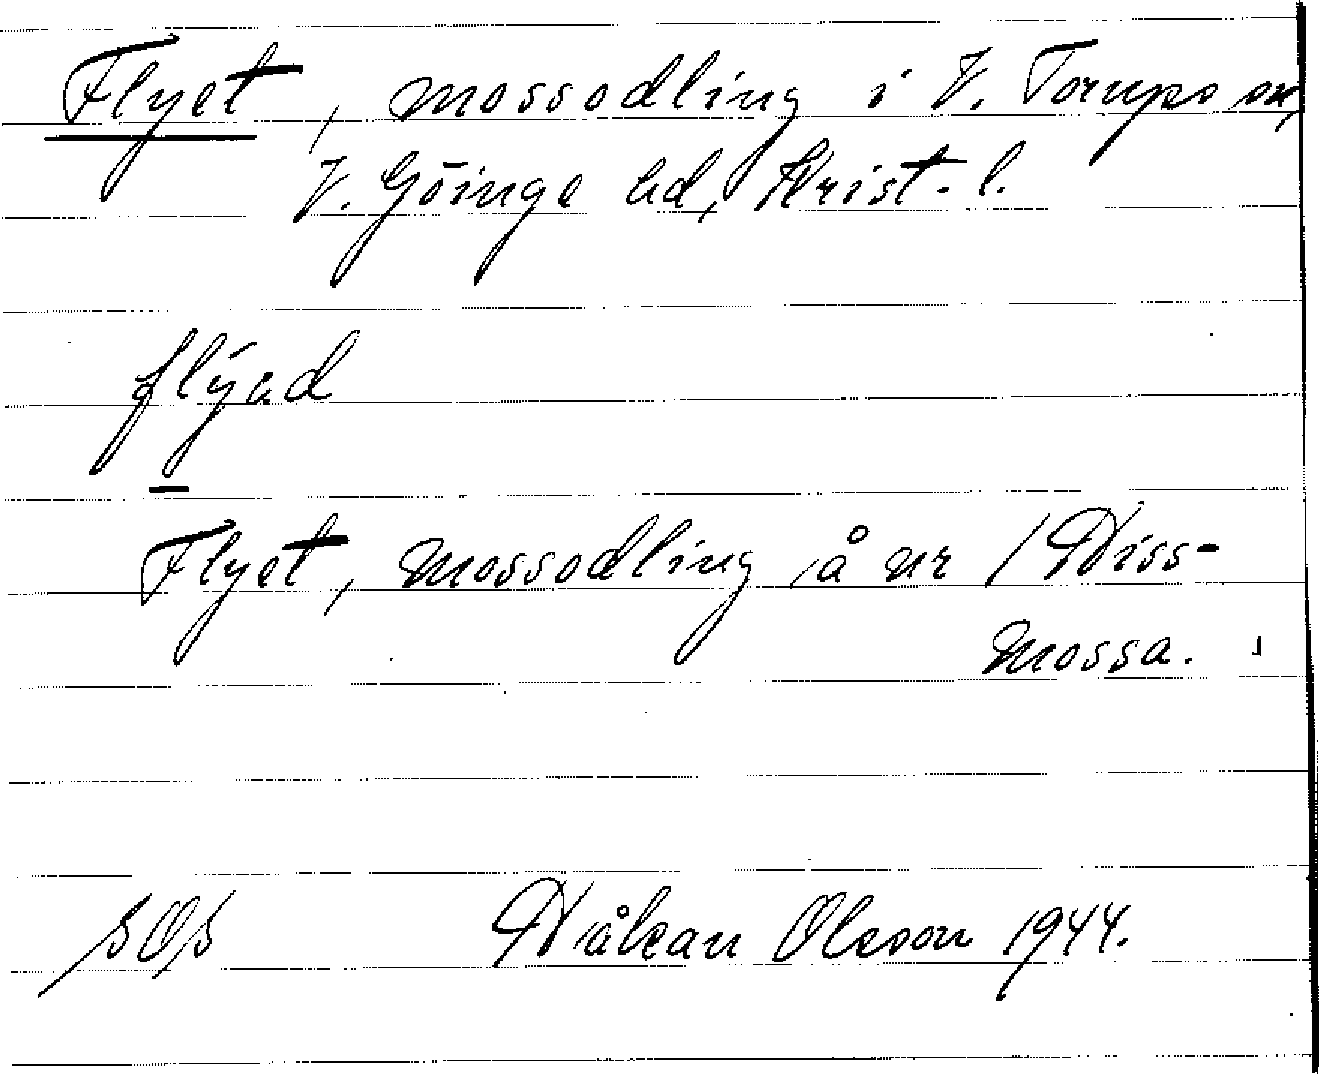 Flyet, mossodling i V. Torups sn,
V. Göinge hd, Krist. l.
flýad
Flyet, mossodling å nr 1 Hiss-
mossa.
SOS Håkan Olsson 1944.